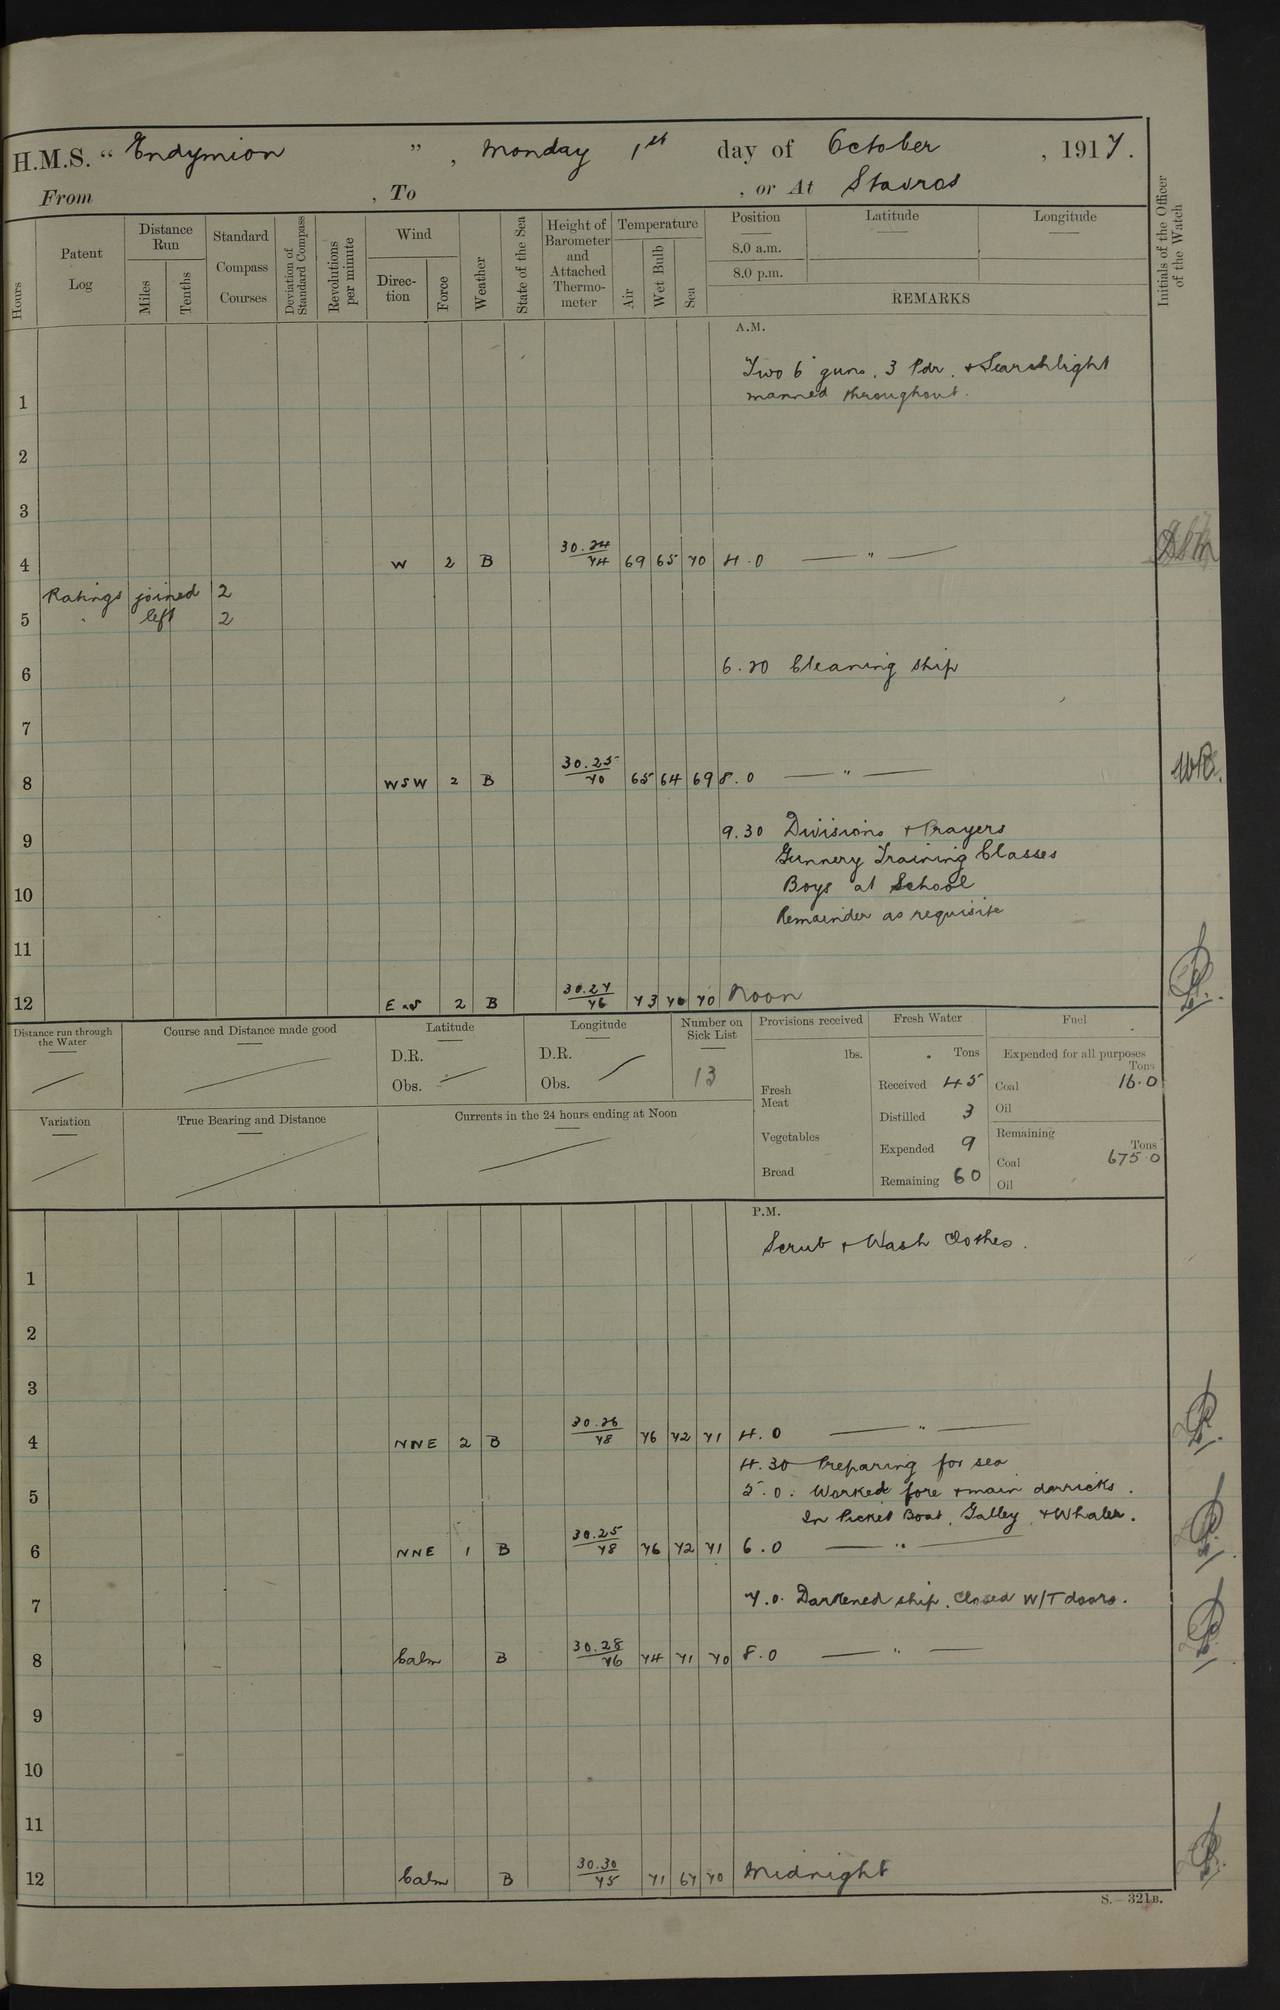 H.M.S. “ Endymion ” , Monday 1st day of October , 1917.
From , To , or At Stavros
Hours
Patent Log
Distance Run
Miles
Tenths
Standard Compass Courses
Deviation of Standard Compass
Revolutions per minute
Wind
Direc-tion
Force
Weather
State of the Sea
Height of Barometer and Attached Thermo-meter
Temperature
Air
Wet Bulb
Sea
Position
8.0 a.m.
8.0 p.m.
Latitude
Longitude
REMARKS
Initials of the Officer of the Watch
A.M.
Two 6" guns. 3 Pdr. & Searchlight
1 manned throughout.
2
3
4 W 2 B 30.24/74 69 65 70 4.0 — " —
Ratings joined 2
5 " left 2
6 6.20 Cleaning ship
7
8 WSW 2 B 30.25/70 65 64 69 8.0 — " —
9 9.30 Divisions & Prayers
Gunnery Training Classes
10 Boys at School
Remainder as requisite
11
12 2 B 30.27/76 73 70 70 Noon
Distance run through the Water
Course and Distance made good
Latitude
D.R.
Obs.
Longitude
D.R.
Obs.
Number on Sick List
13
Provisions received
lbs.
Fresh Meat
Vegetables
Bread
Fresh Water
Tons
Received 45
Distilled 3
Expended 9
Remaining 60
Fuel
Expended for all purposes
Tons
Coal 16.0
Oil
Remaining
Tons
Coal 675.0
Oil
Variation
True Bearing and Distance
Currents in the 24 hours ending at Noon
P.M.
Scrub & Wash Clothes.
1
2
3
4 NNE 2 B 30.26/78 76 72 71 4.0 — " —
4.30 Preparing for sea
5 5.0. Worked fore & main derricks.
In Picket Boat, Galley, & Whaler.
6 NNE 1 B 30.25/78 76 72 71 6.0 — " —
7 7.0. Darkened ship. Closed W/T doors.
8 Calm B 30.28/76 74 71 70 8.0 — " —
9
10
11
12 Calm B 30.30/75 71 67 70 Midnight
S.—321B.